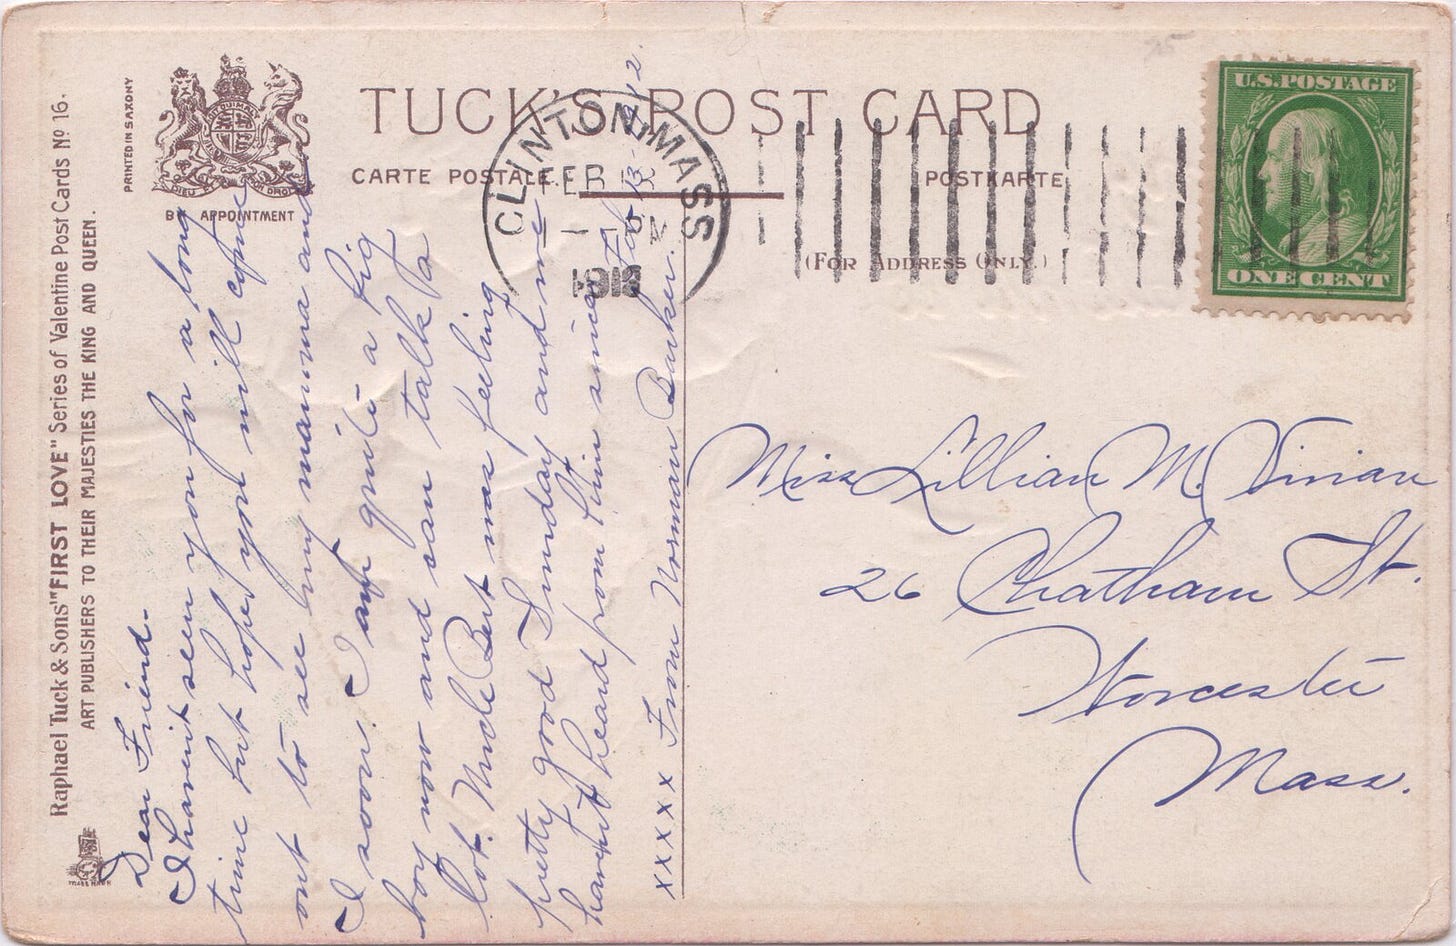 TUCK'S POST CARD
CARTE POSTALE. POSTKARTE
(FOR ADDRESS ONLY.)
PRINTED IN SAXONY
BY APPOINTMENT
Raphael Tuck & Sons' "FIRST LOVE" Series of Valentine Post Cards Nº 16.
ART PUBLISHERS TO THEIR MAJESTIES THE KING AND QUEEN.
TRADE MARK
CLINTON, MASS
FEB
U.S. POSTAGE
ONE CENT
Dear Friend.
I havent seen you for a long
time but hope you will come
out to see my mamma and
I soon. I am quite a big
boy now and can talk a
lot. Uncle Bert was feeling
pretty good Sunday and we
havent heard from him since
xxxxx From Norman Barker. Feb 13-1912.
Miss Lillian M. Vivian
26 Chatham St.
Worcester
Mass.